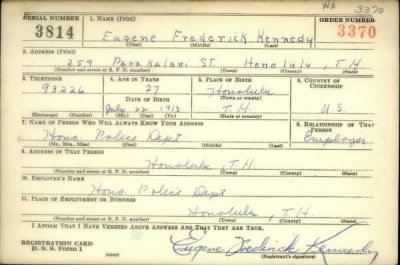 H2 3370
SERIAL NUMBER 1. NAME (Print) ORDER NUMBER
3814 Eugene Frederick Kennedy 3370
(First) (Middle) (Last)
2. ADDRESS (Print)
259 St Honolulu, T.H
(Number and street or R. F. D. number) (Town) (County) (State)
3. TELEPHONE 4. AGE IN YEARS 5. PLACE OF BIRTH 6. COUNTRY OF CITIZENSHIP
93226 27 Honolulu
DATE OF BIRTH (Town or county)
July 22 1913 T.H. U.S.
(Exchange) (Number) (Mo.) (Day) (Yr.) (State or country)
7. NAME OF PERSON WHO WILL ALWAYS KNOW YOUR ADDRESS 8. RELATIONSHIP OF THAT PERSON
Hono Police Dept Employer
(Mr., Mrs., Miss) (First) (Middle) (Last)
9. ADDRESS OF THAT PERSON
Honolulu, T.H.
(Number and street or R. F. D. number) (Town) (County) (State)
10. EMPLOYER'S NAME
Hono Police Dept
11. PLACE OF EMPLOYMENT OR BUSINESS
Honolulu, T.H
(Number and street or R. F. D. number) (Town) (County) (State)
I AFFIRM THAT I HAVE VERIFIED ABOVE ANSWERS AND THAT THEY ARE TRUE.
REGISTRATION CARD
D. S. S. Form 1 (over) Eugene Frederick Kennedy
(Registrant's signature)